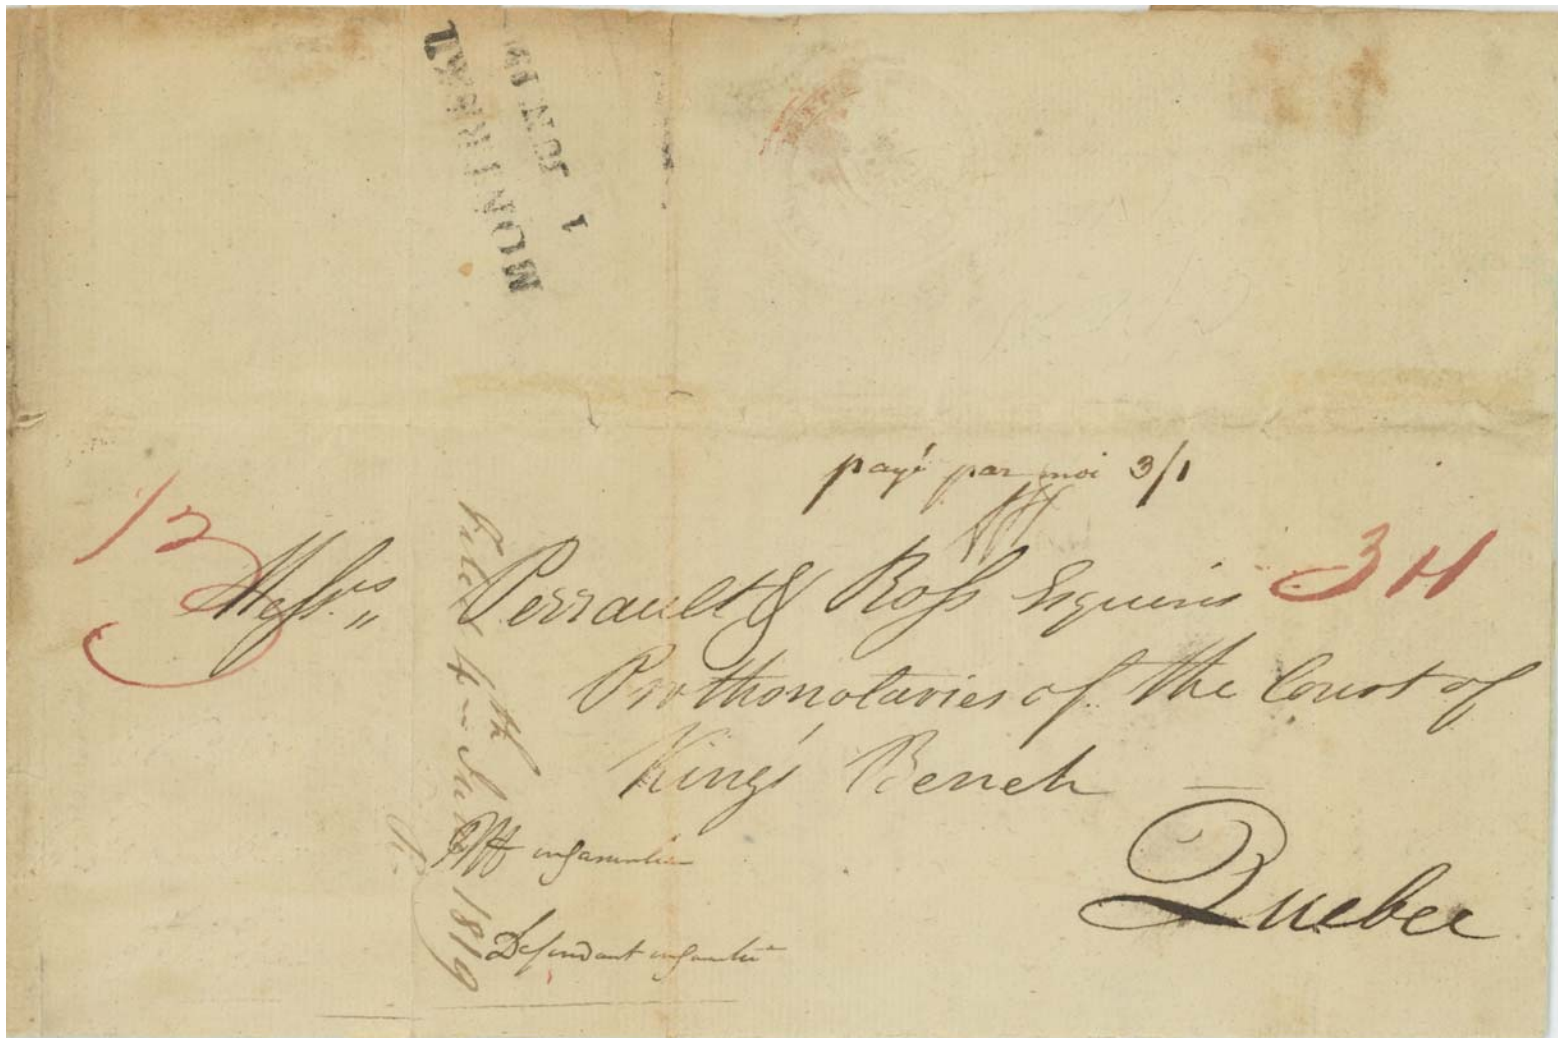 MONTREAL
1 JUN 19
payé par moi 3/1
13
3 H
Messrs,, Perrault & Ross Esquires
Prothonotaries of the Court of
King's Bench
Quebec
4th
1819
Defendant